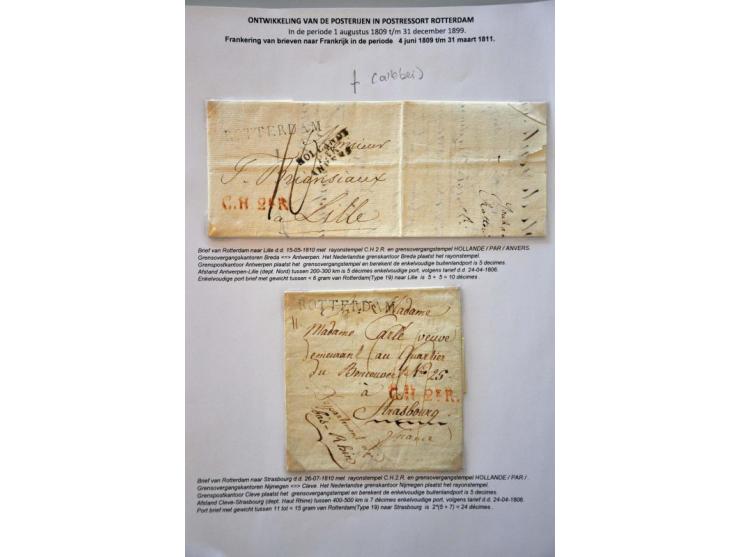 ONTWIKKELING VAN DE POSTERIJEN IN POSTRESSORT ROTTERDAM
In de periode 1 augustus 1809 t/m 31 december 1899.
Frankering van brieven naar Frankrijk in de periode 4 juni 1809 t/m 31 maart 1811.
ROTTERDAM
HOLLANDE
PAR
ANVERS
Monsieur
à Lille
C.H 2e R.
Brief van Rotterdam naar Lille d.d. 15-05-1810 met rayonstempel C.H 2 R. en grensovergangstempel HOLLANDE / PAR / ANVERS.
Grensovergangskantoren Breda <=> Antwerpen. Het Nederlandse grenskantoor Breda plaatst het rayonstempel.
Grenspostkantoor Antwerpen plaatst het grensovergangstempel en berekent de enkelvoudige buitenlandport is 5 decimes.
Afstand Antwerpen-Lille (dept. Nord) tussen 200-300 km is 5 décimes enkelvoudige port, volgens tarief d.d. 24-04-1806.
Enkelvoudige port brief met gewicht tussen < 6 gram van Rotterdam(Type 19) naar Lille is 5 + 5 = 10 décimes .
ROTTERDAM
Madame
Madame Carlé veuve
demeurant au Quartier
du No 25
à
C.H 2e R.
Strasbourg
france
Département du
bas-Rhin
Brief van Rotterdam naar Strasbourg d.d. 26-07-1810 met rayonstempel C.H.2.R. en grensovergangstempel HOLLANDE / PAR / .
Grensovergangskantoren Nijmegen <=> Cleve. Het Nederlandse grenskantoor Nijmegen plaatst het rayonstempel.
Grenspostkantoor Cleve plaatst het grensovergangstempel en berekent de enkelvoudige buitenlandport is 5 decimes.
Afstand Cleve-Strasbourg (dept. Haut Rhime) tussen 400-500 km is 7 décimes enkelvoudige port, volgens tarief d.d. 24-04-1806.
Port brief met gewicht tussen 11 tot = 15 gram van Rotterdam(Type 19) naar Strasbourg is 2*(5 + 7) = 24 décimes .